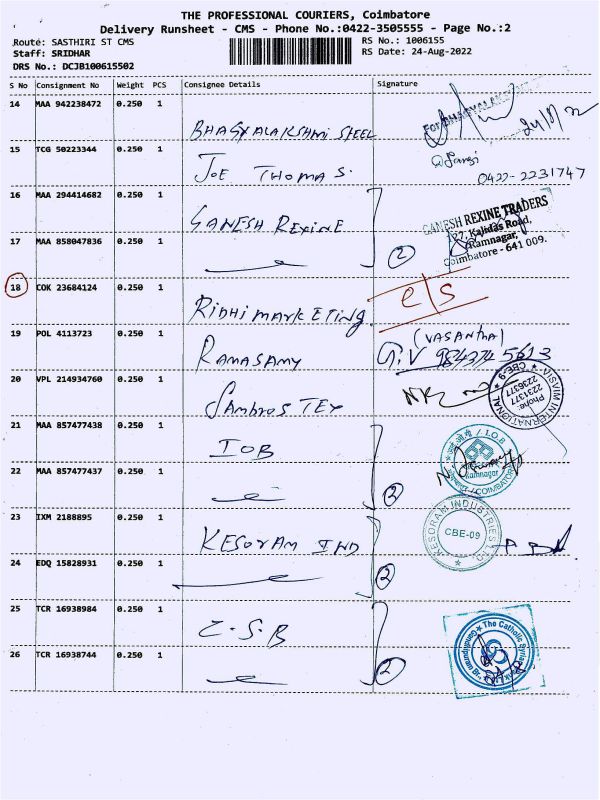 THE PROFESSIONAL COURIERS, Coimbatore
Delivery Runsheet - CMS - Phone No.:0422-3505555 - Page No.:2
Route: SASTHIRI ST CMS
RS No.: 1006155
Staff: SRIDHAR
RS Date: 24-Aug-2022
DRS No.: DCJB100615502
S No Consignment No Weight PCS Consignee Details Signature
14 MAA 942238472 0.250 1
BHAGYALAKSHMI STEEL
15 TCG 50223344 0.250 1
JOE THOMAS.
0422-2231747
16 MAA 294414682 0.250 1
GANESH REXINE
GANESH REXINE TRADERS
27, Kalidas Road,
Ramnagar,
Coimbatore - 641 009.
17 MAA 858047836 0.250 1
2
18 COK 23684124 0.250 1
RIDHI MARKETING
c/s
19 POL 4113723 0.250 1
(VASANTHA)
RAMASAMY
G.V
20 VPL 214934760 0.250 1
SAMBROS TEX
VISVIM INTERNATIONAL
CBE-9
Phone:
2231377
2236377
21 MAA 857477438 0.250 1
IOB
I.O.B
Ramnagar
COIMBATORE
22 MAA 857477437 0.250 1
2
23 IXM 2188895 0.250 1
KESORAM IND
KESORAM INDUSTRIES LTD.
CBE-09
24 EDQ 15828931 0.250 1
2
25 TCR 16938984 0.250 1
C.S.B
The Catholic Syrian
26 TCR 16938744 0.250 1
2